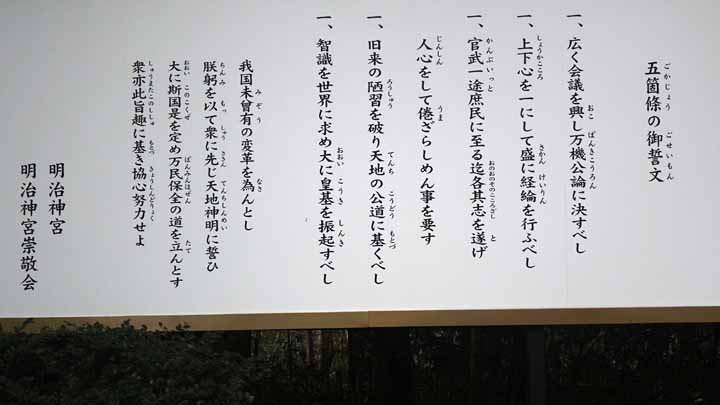 五箇條の御誓文
一、広く会議を興し万機公論に決すべし
一、上下心を一にして盛に経綸を行ふべし
一、官武一途庶民に至る迄各其志を遂げ
人心をして倦ざらしめん事を要す
一、旧来の陋習を破り天地の公道に基くべし
一、智識を世界に求め大に皇基を振起すべし
我国未曾有の変革を為んとし
朕躬を以て衆に先じ天地神明に誓ひ
大に斯国是を定め万民保全の道を立んとす
衆亦此旨趣に基き協心努力せよ
明治神宮
明治神宮崇敬会